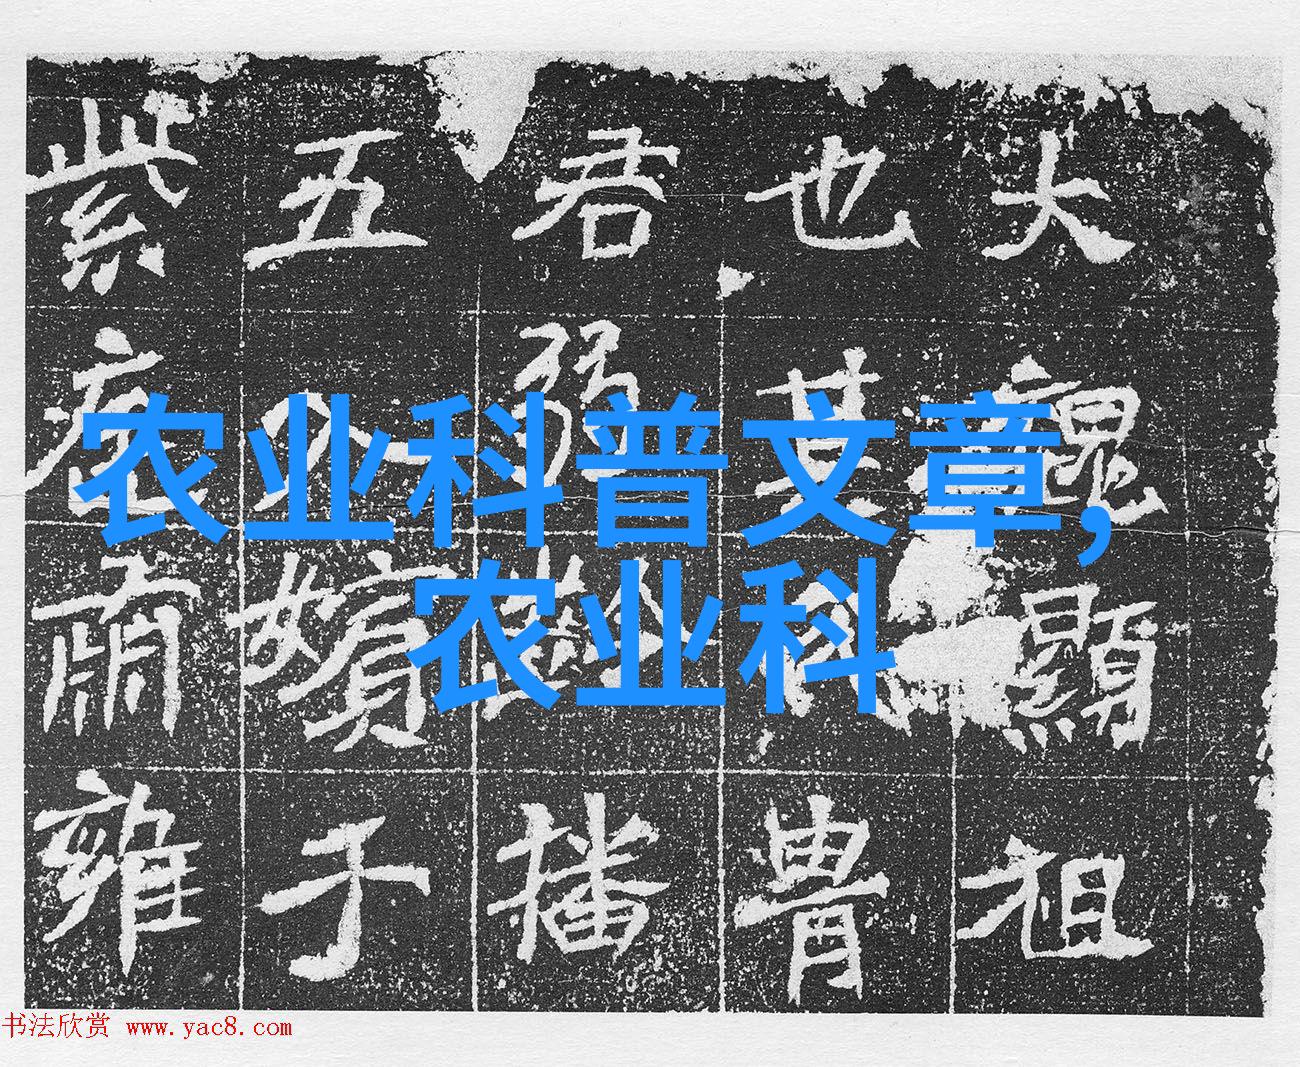 大魏顯祖
也其胄
君弱齡播
五入嬪于
紫庭肅雍
农业科普文章,
农业科
书法欣赏 www.yac8.com